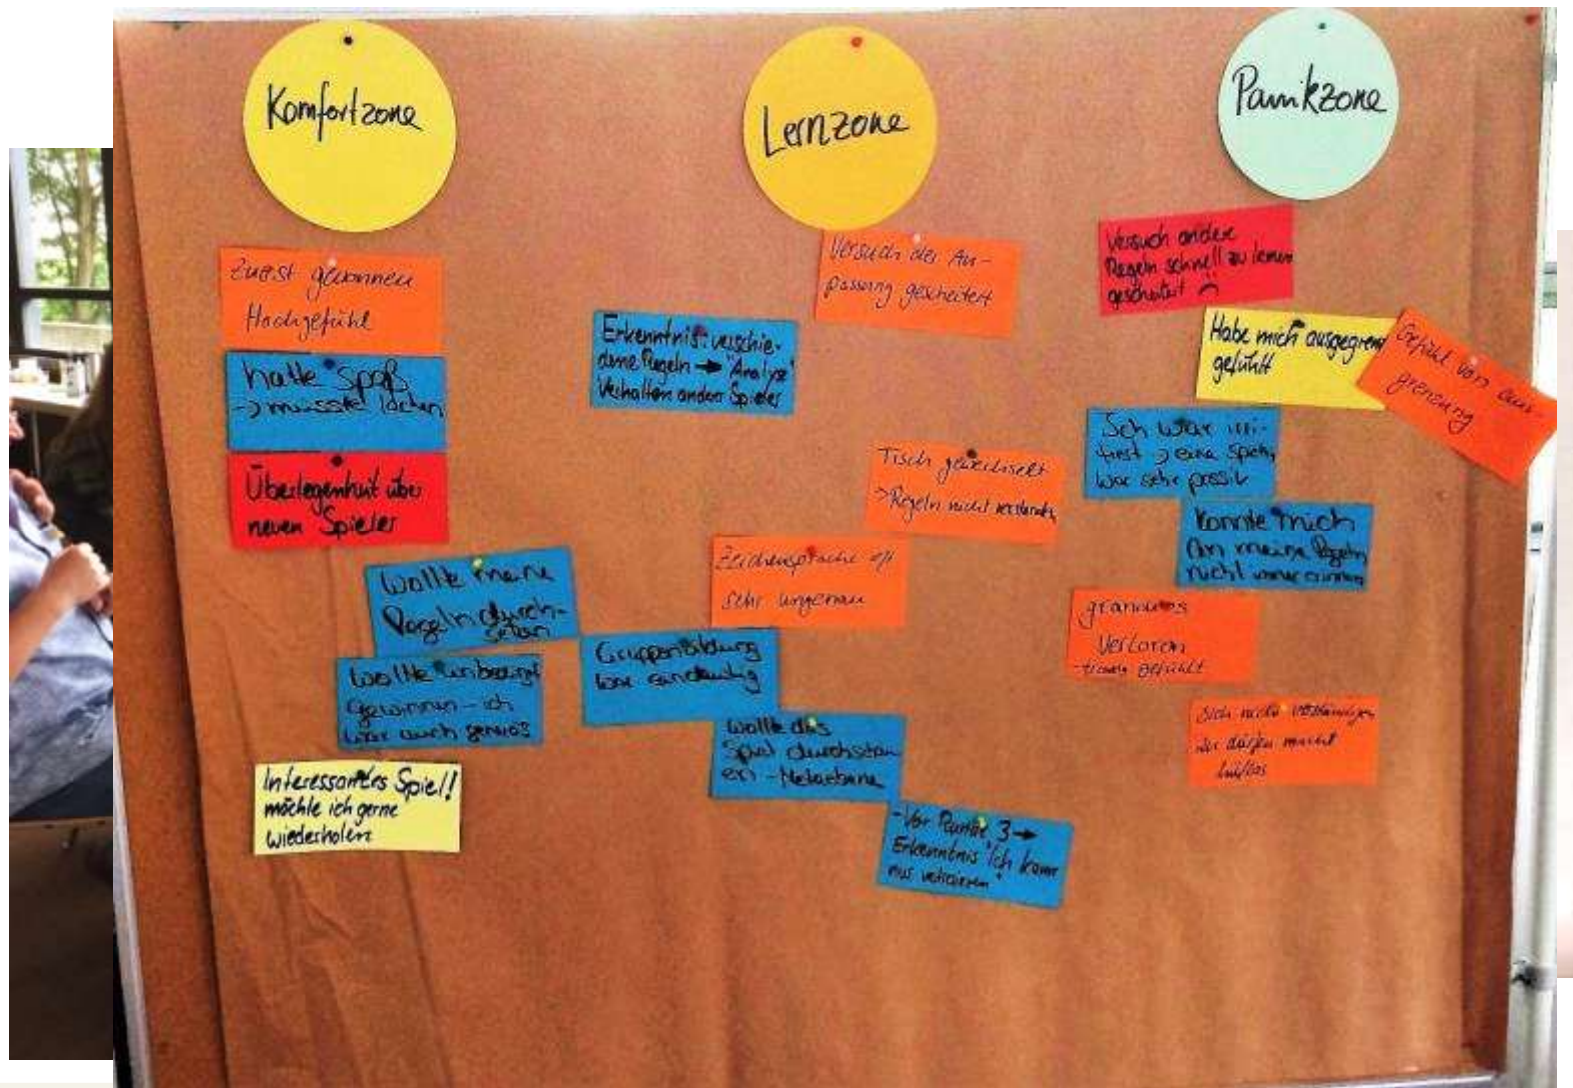 Komfortzone
Zuerst gewonnen
Hochgefühl
hatte Spaß
-> musste lachen
Überlegenheit über
neuen Spieler
Wollte meine
Regeln durch-
setzen
Wollte unbedingt
Gewinnen - ich
war auch
Interessantes Spiel!
möchte ich gerne
wiederholen
Lernzone
Versuch der An-
passung gescheitert
Erkenntnis: verschie-
dene Regeln → "Analyse"
Verhalten anderer Spieler
Tisch gewechselt
-> Regeln nicht verstanden
Zeichensprache oft
sehr ungenau
Gruppenbildung
war eindeutig
Wollte das
Spiel durchschau
en - Metaebene
- Vor Runde 3 →
Erkenntnis "Ich kann
nur verlieren"
Panikzone
Versuch andere
Regeln schnell zu lernen
gescheitert ☹
Habe mich ausgegrenzt
gefühlt
Gefühl von Aus-
grenzung
Ich war
war sehr passiv
Konnte mich
an meine Regeln
nicht immer erinnern
grandios
verloren
gefühlt
Sich nicht verständigen
zu dürfen macht
hilflos